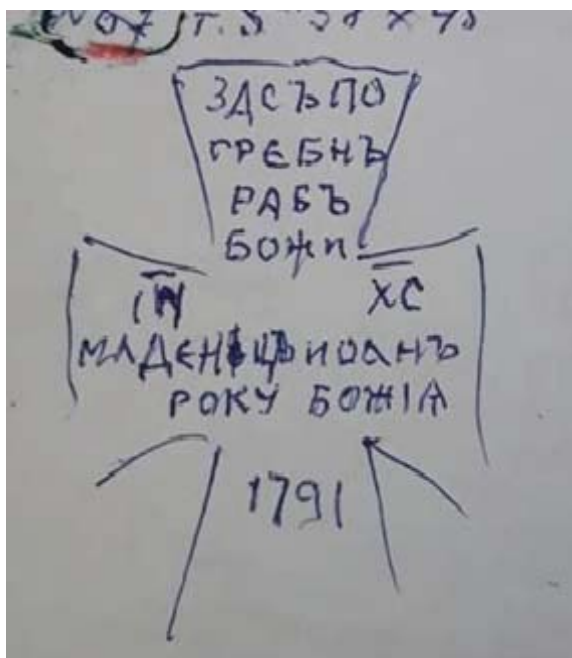 т. 8 38 х 48
ЗДСЪПО
ГРЕБНЪ
РАБЪ
БОЖИ
ІИ ХС
МЛДЕНЕЦЪ ИОАНЪ
РОКУ БОЖІЯ
1791